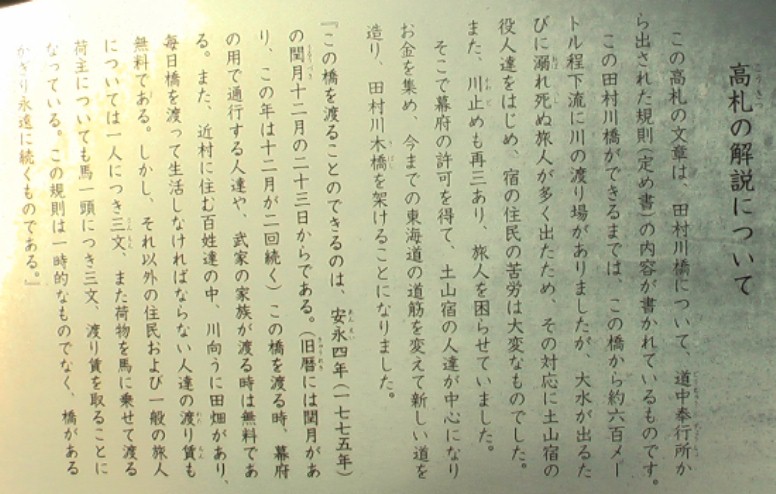 高札の解説について
この高札の文章は、田村川橋について、道中奉行所か
ら出された規則(定め書)の内容が書かれているものです。
この田村川橋ができるまでは、この橋から約六百メー
トル程下流に川の渡り場がありましたが、大水が出るた
びに溺れ死ぬ旅人が多く出たため、その対応に土山宿の
役人達をはじめ、宿の住民の苦労は大変なものでした。
また、川止めも再三あり、旅人を困らせていました。
そこで幕府の許可を得て、土山宿の人達が中心になり
お金を集め、今までの東海道の道筋を変えて新しい道を
造り、田村川木橋を架けることになりました。
『この橋を渡ることのできるのは、安永四年(一七七五年)
の閏月十二月の二十三日からである。(旧暦には閏月があ
り、この年は十二月が二回続く)この橋を渡る時、幕府
の用で通行する人達や、武家の家族が渡る時は無料であ
る。また、近村に住む百姓達の中、川向うに田畑があり、
毎日橋を渡って生活しなければならない人達の渡り賃も
無料である。しかし、それ以外の住民および一般の旅人
については一人につき三文、また荷物を馬に乗せて渡る
荷主についても馬一頭につき三文、渡り賃を取ることに
なっている。この規則は一時的なものでなく、橋がある
かぎり永遠に続くものである。』